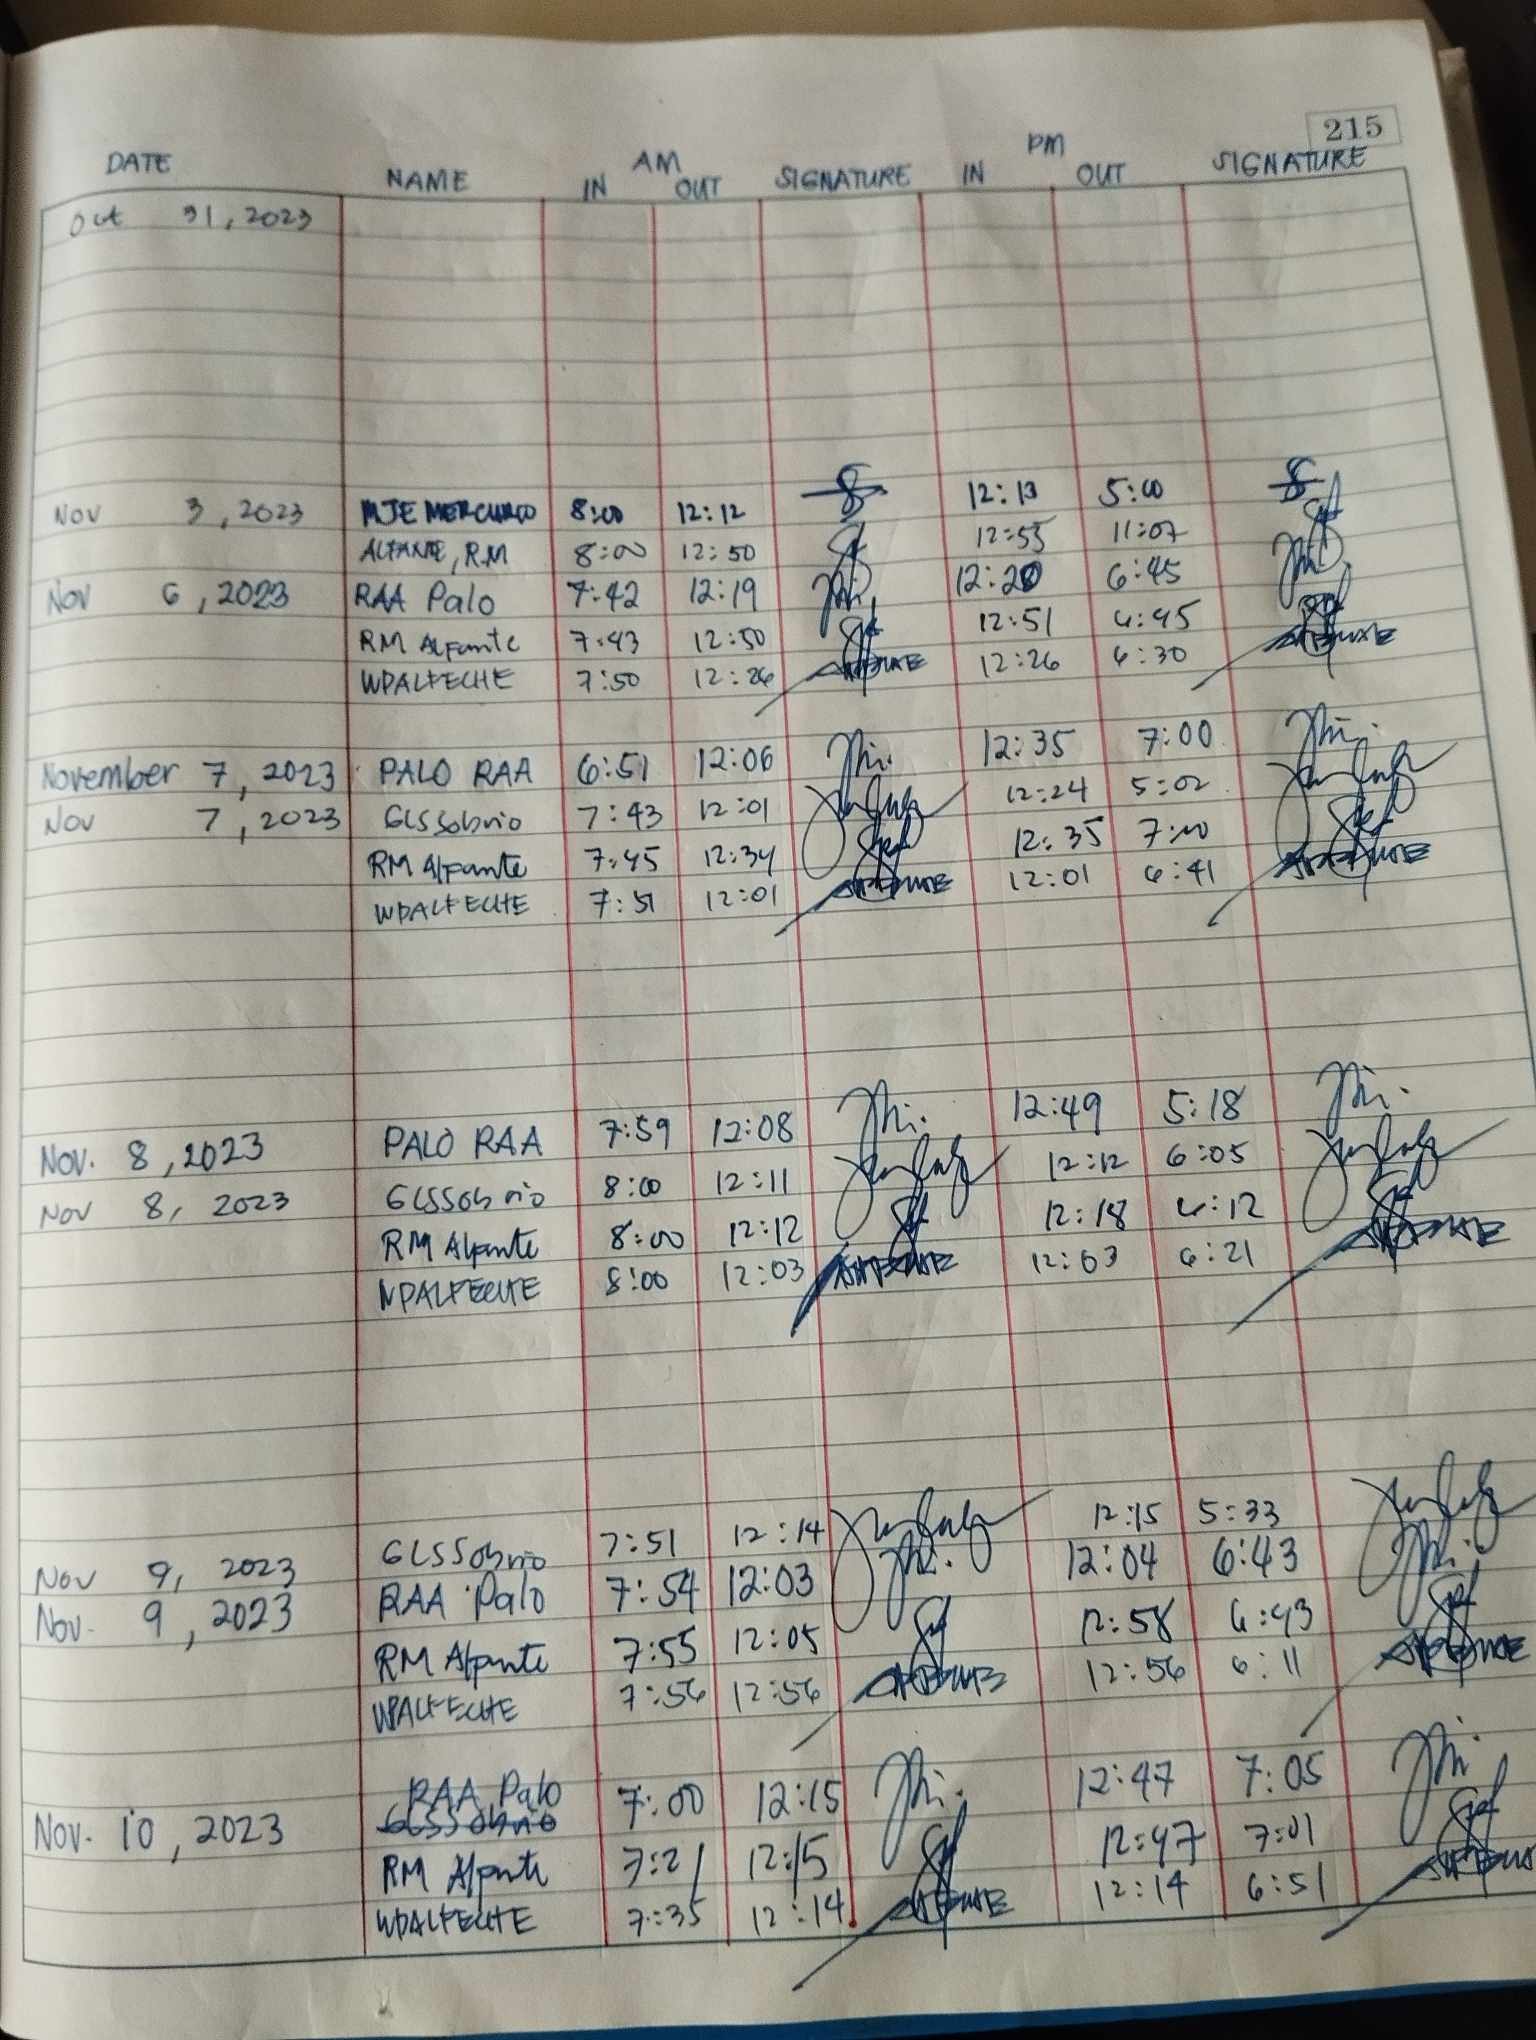 215
DATE NAME AM IN OUT SIGNATURE PM IN OUT SIGNATURE
Oct 31, 2023
Nov 3, 2023 MJE MERCURIO 8:00 12:12 12:13 5:00
ALFANTE, RM 8:00 12:50 12:55 11:07
Nov 6, 2023 RAA Palo 7:42 12:19 12:20 6:45
RM Alfante 7:43 12:50 12:51 6:45
WDALFECHE 7:50 12:26 12:26 6:30
November 7, 2023 PALO RAA 6:51 12:06 12:35 7:00
Nov 7, 2023 GLSSobrio 7:43 12:01 12:24 5:02
RM Alfante 7:45 12:34 12:35 7:00
WDALFECHE 7:51 12:01 12:01 6:41
Nov. 8, 2023 PALO RAA 7:59 12:08 12:49 5:18
Nov 8, 2023 GLSSobrio 8:00 12:11 12:12 6:05
RM Alfante 8:00 12:12 12:18 6:12
WDALFECHE 8:00 12:03 12:03 6:21
Nov 9, 2023 GLSSobrio 7:51 12:14 12:15 5:33
Nov. 9, 2023 RAA Palo 7:54 12:03 12:04 6:43
RM Alfante 7:55 12:05 12:58 6:43
WDALFECHE 7:56 12:56 12:56 6:11
RAA Palo 7:00 12:15 12:47 7:05
Nov. 10, 2023 GLSSobrio
RM Alfante 7:21 12:15 12:47 7:01
WDALFECHE 7:35 12:14 12:14 6:51